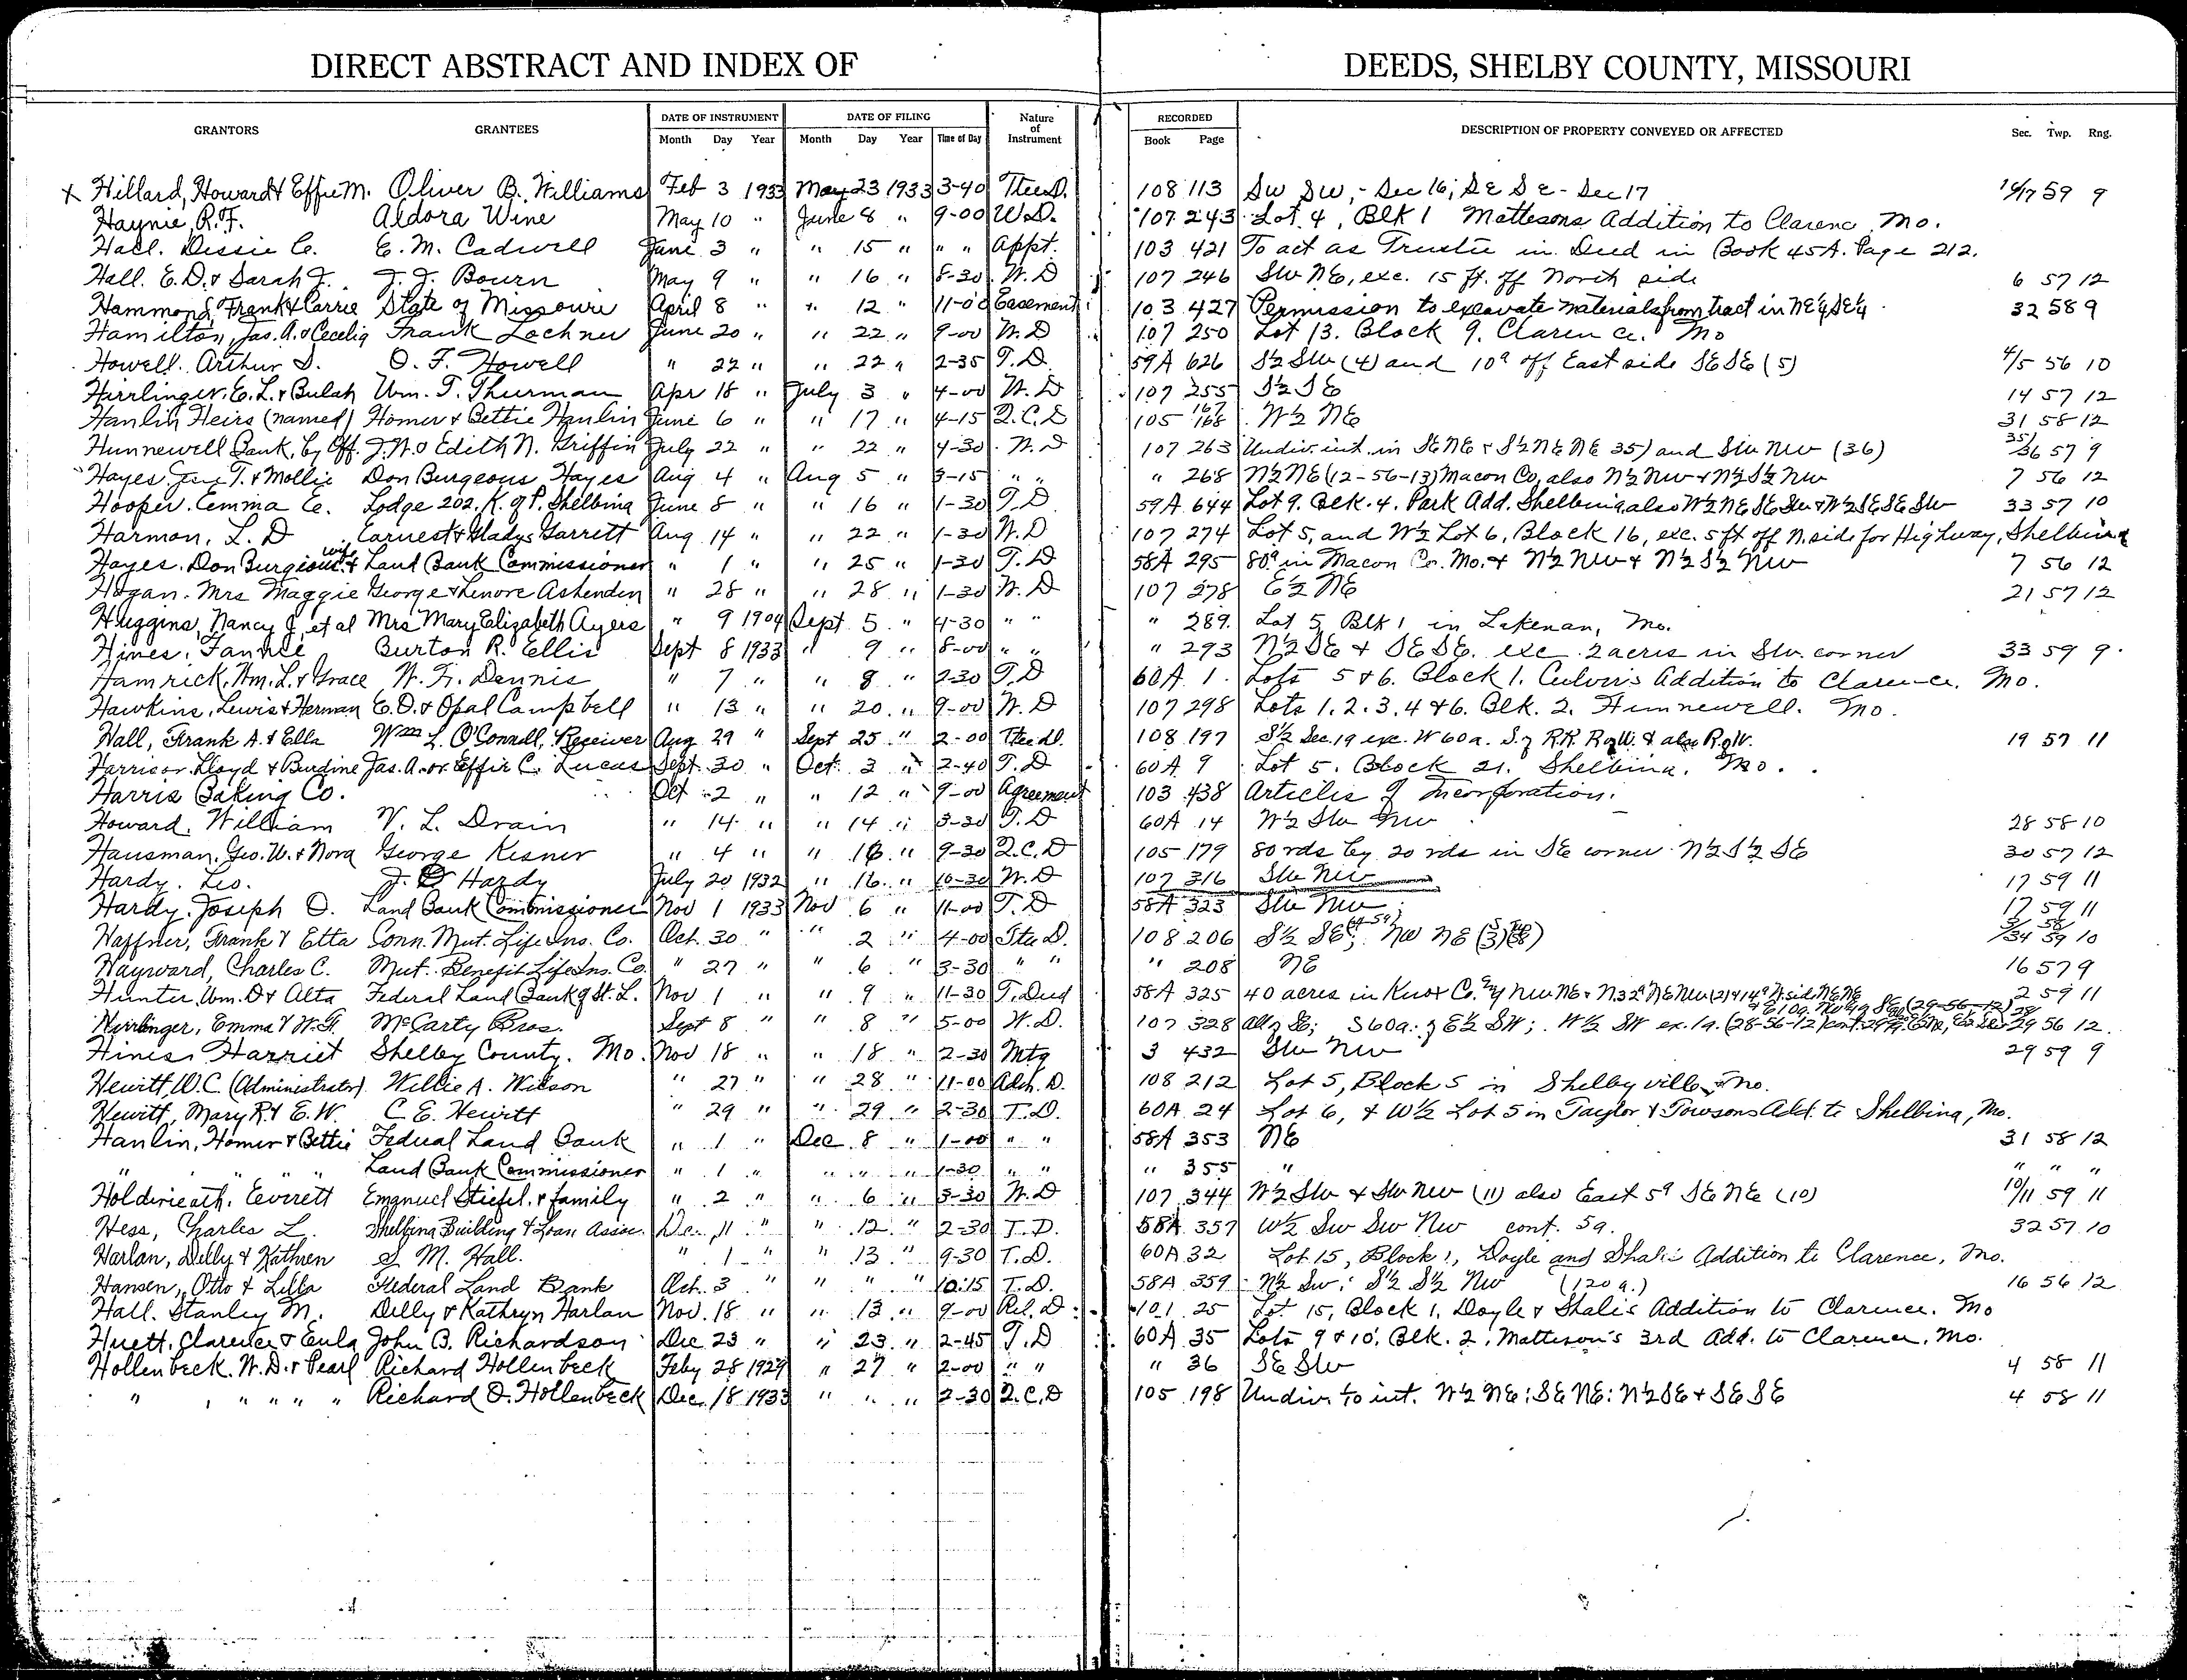 DIRECT ABSTRACT AND INDEX OF DEEDS, SHELBY COUNTY, MISSOURI
GRANTORS GRANTEES DATE OF INSTRUMENT DATE OF FILING Nature of Instrument RECORDED DESCRIPTION OF PROPERTY CONVEYED OR AFFECTED Sec. Twp. Rng.
Month Day Year Month Day Year Time of Day Book Page
x Hillard, Howard & Effie M. Oliver B. Williams Feb 3 1933 May 23 1933 3-40 Tr D. 108 113 SW SW, - Sec 16; SE SE - Sec 17 16/17 59 9
Haynie, R.F. Aldora Wine May 10 " June 8 " 9-00 W.D. 107 243 Lot 4, Blk 1 Mattesons Addition to Clarenc Mo.
Hall. Dessie C. E. M. Cadwell June 3 " " 15 " " " Appt. 103 421 To act as Trustee in Deed in Book 45A. Page 212.
Hall. E.D. & Sarah J. J. J. Bourn May 9 " " 16 " 8-30 W.D 107 246 SW NE, exc. 15 ft. off North side 6 57 12
Hammond, Frank & Carrie State of Missouri April 8 " " 12 " 11-00 Easement 103 427 Permission to excavate materials from tract in NE¼ SE¼ 32 58 9
Hamilton, Jas. A. & Cecelia Frank Lochner June 20 " " 22 " 9-00 W.D 107 250 Lot 13. Block 9. Clarence. Mo
Howell. Arthur S. O. F. Howell " 22 " " 22 " 2-35 T.D. 59A 626 S½ SW (4) and 10a off East side SE SE (5) 4/5 56 10
Hirrlinger, E. L. & Bulah Wm. T. Thurman Apr 18 " July 3 " 4-00 W.D 107 255 S½ SE 14 57 12
Hanlin Heirs (named) Homer & Bettie Hanlin June 6 " " 17 " 4-15 Q.C.D 105 167/168 W½ NE 31 58 12
Hunnewell Bank, by Off. J.W. & Edith N. Griffin July 22 " " 22 " 4-30 W.D 107 263 Undiv. int. in SE NE & S½ NE NE 35) and SW NW (36) 35/36 57 9
Hayes T. & Mollie Don Burgeous Hayes Aug 4 " Aug 5 " 3-15 " " " 268 N½ NE (12-56-13) Macon Co, also N½ NW & N½ S½ NW 7 56 12
Hooper. Emma E. Lodge 202. K. of P. Shelbina June 8 " " 16 " 1-30 T.D 59A 644 Lot 9. Blk. 4. Park Add. Shelbina also W½ NE SE SW & W½ SE SE SW 33 57 10
Harmon, L. D Earnest & Gladys Garrett Aug 14 " " 22 " 1-30 W.D 107 274 Lot 5, and W½ Lot 6, Block 16, exc. 5 ft off N. side for Highway, Shelbina
Hayes. Don Burgious & wife Land Bank Commissioner " 1 " " 25 " 1-30 T.D 58A 295 80a in Macon Co. Mo. & N½ NW & N½ S½ NW 7 56 12
Hogan. Mrs Maggie George & Lenore Ashenden " 28 " " 28 " 1-30 W.D 107 278 E½ NE 21 57 12
Huggins, Nancy J, et al Mrs Mary Elizabeth Ayers " 9 1904 Sept 5 " 4-30 " " " 289. Lot 5 Blk 1 in Lakenan, Mo.
Hines, Fannie Burton R. Ellis Sept 8 1933 " 9 " 8-00 " " " 293 N½ SE & SE SE. exc 2 acres in SW. corner 33 59 9.
Hamrick, Wm. L. & Grace W. F. Dennis " 7 " " 8 " 2-30 T.D 60A 1. Lots 5 & 6. Block 1, Culver's Addition to Clarence. Mo.
Hawkins, Lewis & Herman E. O. & Opal Campbell " 13 " " 20 " 9-00 W.D 107 298 Lots 1. 2. 3. 4 & 6. Blk. 2. Hunnewell. Mo.
Hall, Frank A. & Ella Wm L. O'Connell, Receiver Aug 29 " Sept 25 " 2-00 Tr. D. 108 197 S½ Sec. 19 exc. W 60a. S. of RR R of W. & also R of W. 19 57 11
Harrison Lloyd & Burdine Jas. A. or Effie C. Lucas Sept 30 " Oct. 3 " 2-40 T.D 60A 9 Lot 5. Block 21. Shelbina. Mo.
Harris Baking Co. Oct 2 " " 12 " 9-00 Agreement 103 438 Articles of Incorporation.
Howard. William V. L. Drain " 14 " " 14 " 3-30 T.D 60A 14 W½ SW NW 28 58 10
Hausman, Geo. W. & Nora George Kesner " 4 " " 16 " 9-30 Q.C.D 105 179 80 rds by 20 rds in SE corner N½ S½ SE 30 57 12
Hardy. Leo. J. O Hardy July 20 1932 " 16 " 10-30 W.D 107 316 SW NW 17 59 11
Hardy. Joseph O. Land Bank Commissioner Nov 1 1933 Nov 6 " 11-00 T.D 58A 323 SW NW 17 59 11
Haffner, Frank & Etta Conn. Mut. Life Ins. Co. Oct. 30 " " 2 " 4-00 D. 108 206 S½ SE; NW NE 3/34 58/59 10
Hayward, Charles C. Mut. Benefit Life Ins. Co. " 27 " " 6 " 3-30 " " " 208 NE 16 57 9
Hunter, Wm. D & Alta Federal Land Bank of St. L. Nov 1 " " 9 " 11-30 T. Deed 58A 325 40 acres in Knox Co. NW NE & N32a NE NW (2) & 14a N. side NE NE 2 59 11
Hirrlinger, Emma & W. F. McCarty Bros. Sept 8 " " 8 " 5-00 W.D. 107 328 All of SE; S 60a. of E½ SW; W½ SW ex. 1a. (28-56-12) 28/29 56 12
Hines Harriet Shelby County. Mo. Nov 18 " " 18 " 2-30 Mtg 3 432 SW NW 29 59 9
Hewitt, W.C. (Administrator). Willie A. Wilson " 27 " " 28 " 11-00 Adm. D. 108 212 Lot 5, Block 5 in Shelbyville, Mo.
Hewitt, Mary R. & E. W. C. E. Hewitt " 29 " " 29 " 2-30 T.D. 60A 24 Lot 6, & W½ Lot 5 in Taylor & Towsons Add. to Shelbina, Mo.
Hanlin, Homer & Bettie Federal Land Bank " 1 " Dec 8 " 1-00 " " 58A 353 NE 31 58 12
" " " " Land Bank Commissioner " 1 " " " " 1-30 " " " 355 " " " "
Holdwieath. Everett Emanuel Stiefel. & family " 2 " " 6 " 3-30 W.D 107 344 W½ SW & SW NW (11) also East 5a SE NE (10) 10/11 59 11
Hess, Charles L. Shelbina Building & Loan Assoc. Dec. 11 " " 12 " 2-30 T.D. 58A 357 W½ SW SW NW cont. 5a. 32 57 10
Harlan, Dilly & Kathren S. M. Hall. " 1 " " 13 " 9-30 T.D. 60A 32 Lot 15, Block 1, Doyle and Shale Addition to Clarence, Mo.
Hansen, Otto & Lilla Federal Land Bank Oct. 3 " " " " 10:15 T.D. 58A 359 N½ SW; S½ S½ NW (120 a.) 16 56 12
Hall. Stanley M. Dilly & Kathryn Harlan Nov. 18 " " 13 " 9-00 Rel. D 101 25 Lot 15, Block 1, Doyle & Shale's Addition to Clarence. Mo
Huett, Clarence & Eula John B. Richardson Dec 23 " " 23 " 2-45 T.D 60A 35 Lots 9 & 10, Blk. 2, Matteson's 3rd Add. to Clarence, Mo.
Hollenbeck. W. D. & Pearl Richard Hollenbeck Feby 28 1929 " 27 " 2-00 " " " 36 SE SW 4 58 11
" " " " " Richard O. Hollenbeck Dec. 18 1933 " " " 2-30 Q.C.D 105 198 Undiv. int. N½ NE; SE NE; N½ SE & SE SE 4 58 11